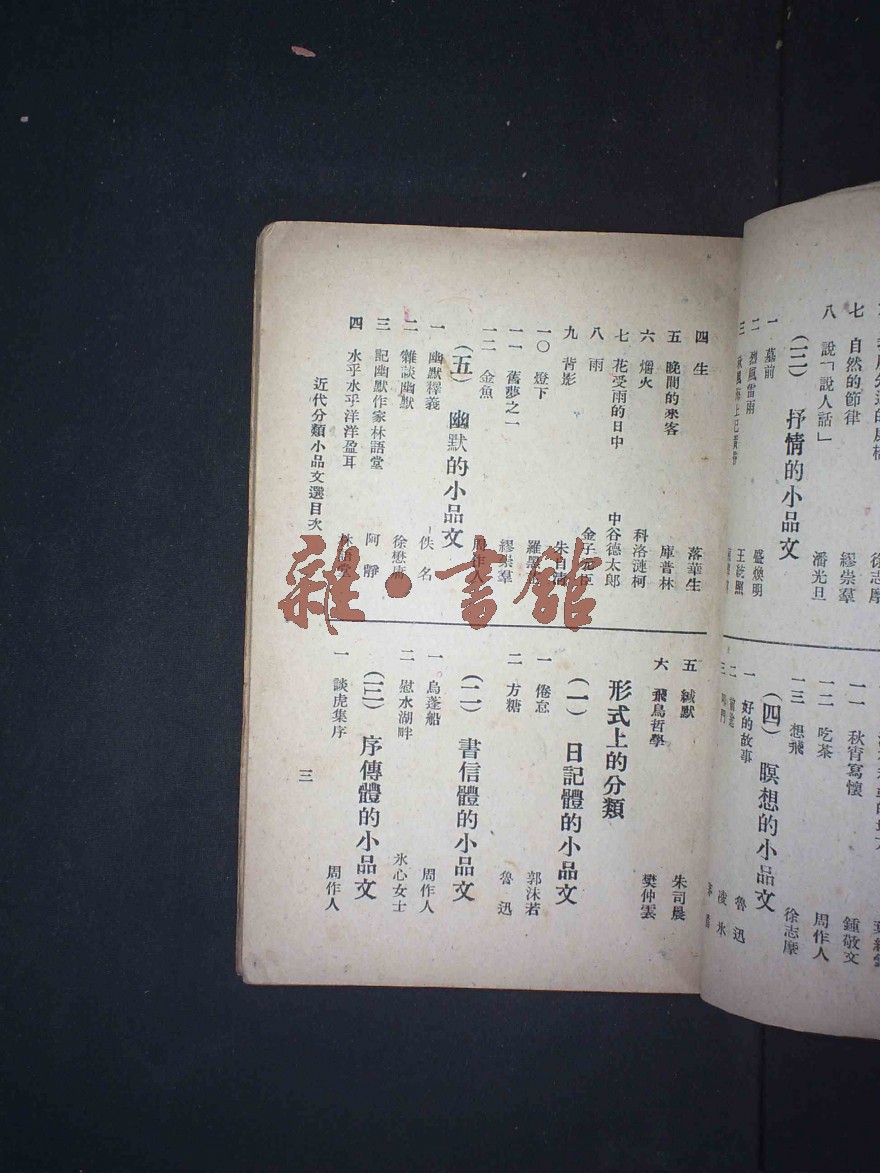 七 自然的節律 繆崇羣
八 說「說人話」 潘光旦
(三) 抒情的小品文
一 墓前 盛煥明
二 烈風雷雨 王統照
三
一一 秋宵寫懷 鍾敬文
一二 吃茶 周作人
一三 想飛 徐志摩
(四) 瞑想的小品文
一 好的故事 魯迅
二
三
四 生 落華生
五 晚間的來客 庫普林
六 燔火 科洛漣柯
七 花受雨的日中 中谷德太郎
八 雨 金子元臣
九 背影 朱自清
一〇 燈下
一一 舊夢之一 繆崇羣
一二 金魚 周作人
(五) 幽默的小品文
一 幽默釋義 佚名
二 雜談幽默 徐懋庸
三 記幽默作家林語堂 阿靜
四 水乎水乎洋洋盈耳 林語堂
近代分類小品文選目次
五 緘默 朱司晨
六 飛鳥哲學 樊仲雲
形式上的分類
(一) 日記體的小品文
一 倦怠 郭沫若
二 方糖 魯迅
(二) 書信體的小品文
一 烏蓬船 周作人
二 慰水湖畔 冰心女士
(三) 序傳體的小品文
一 談虎集序 周作人
三
雜·書館